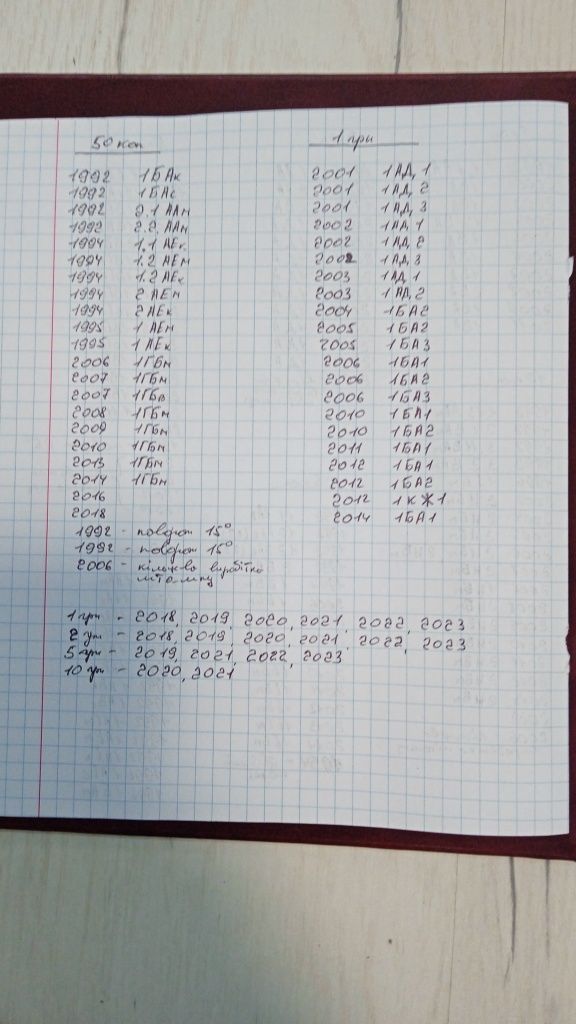 50 коп
1992 1БАк
1992 1БАс
1992 2.1 ААм
1992 2.2 ААм
1994 1.1 АЕк
1994 1.2 АЕм
1994 1.2 АЕк
1994 2 АЕм
1994 2 АЕк
1995 1 АЕм
1995 1 АЕк
2006 1ГБм
2007 1ГБм
2007 1ГБв
2008 1ГБм
2009 1ГБм
2010 1ГБм
2013 1ГБм
2014 1ГБм
2016
2018
1992 - поворот 15°
1992 - поворот 15°
2006 - кільцева виробітка
штампу
1 грн
2001 1АД 1
2001 1АД 2
2001 1АД 3
2002 1АД 1
2002 1АД 2
2002 1АД 3
2003 1АД 1
2003 1АД 2
2004 1БА2
2005 1БА2
2005 1БА3
2006 1БА1
2006 1БА2
2006 1БА3
2010 1БА1
2010 1БА2
2011 1БА1
2012 1БА1
2012 1БА2
2012 1КЖ1
2014 1БА1
1 грн - 2018, 2019, 2020, 2021, 2022, 2023
2 грн - 2018, 2019, 2020, 2021, 2022, 2023
5 грн - 2019, 2021, 2022, 2023
10 грн - 2020, 2021